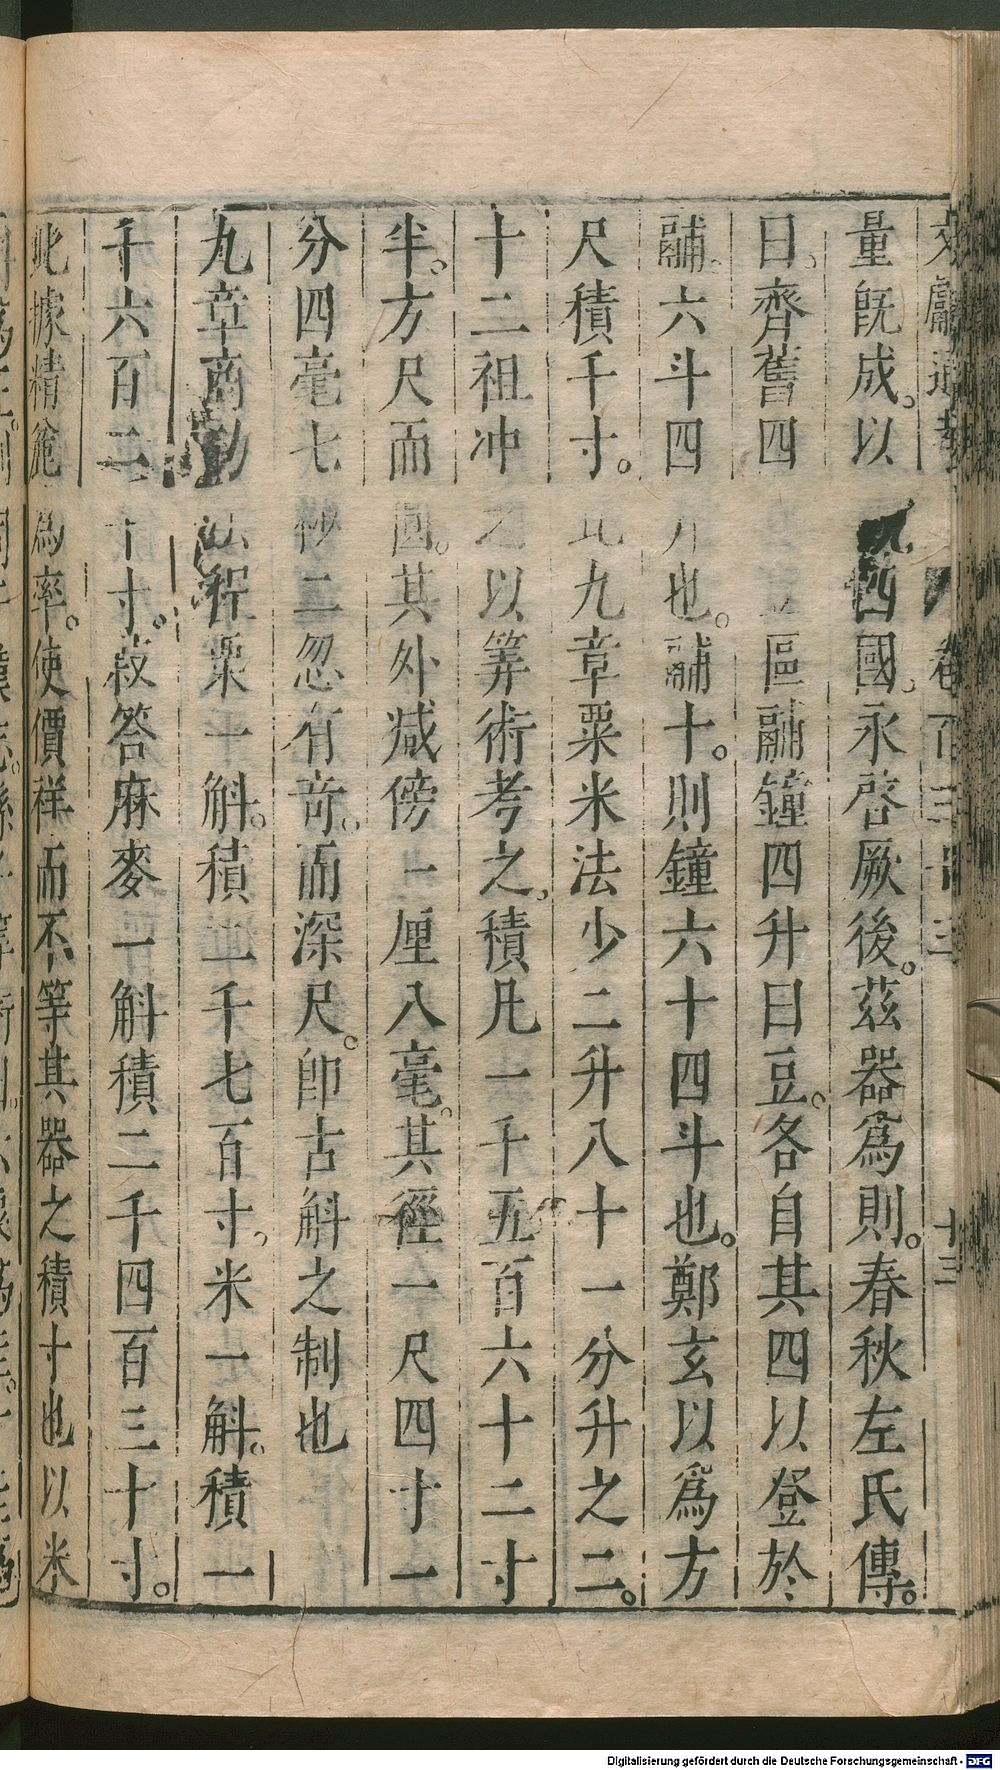 文獻通考 卷百三十三 十三
量旣成。以觀四國。永啓厥後。茲器爲則。春秋左氏傳。
曰。齊舊四量豆區鬴鐘四升曰豆。各自其四以登於
鬴。六斗四升也。鬴十。則鐘六十四斗也。鄭玄以爲方
尺積千寸。比九章粟米法少二升八十一分升之二。
十二祖冲之以筭術考之。積凡一千五百六十二寸
半。方尺而圓。其外减傍一厘八毫。其徑一尺四寸一
分四毫七秒二忽有竒。而深尺。卽古斛之制也
九章商功法程粟一斛。積二千七百寸。米一斛。積一
千六百二十寸。菽荅麻麥一斛積二千四百三十寸。
此據精麄爲率。使價祥而不等其器之積寸也以米
Digitalisierung gefördert durch die Deutsche Forschungsgemeinschaft - DFG